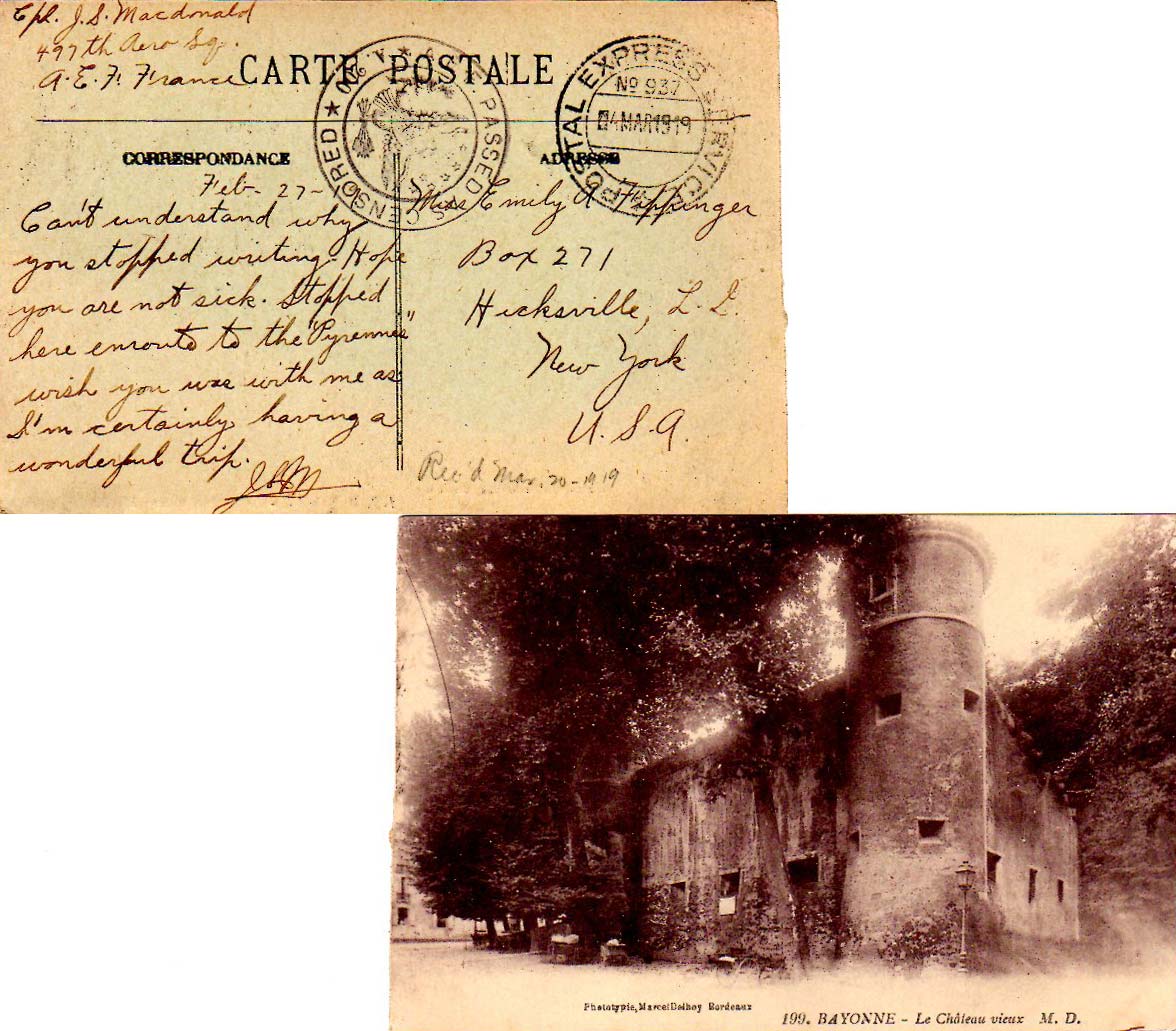 Cpl. J.S. Macdonald
497th Aero Sq.
A.E.F. France
CARTE POSTALE
A.E.F. PASSED AS CENSORED
POSTAL EXPRESS SERVICE
No 937
04 MAR 1919
CORRESPONDANCE
ADRESSE
Feb- 27-
Can't understand why
you stopped writing. Hope
you are not sick. Stopped
here enroute to the "Pyrennes"
wish you was with me as
I'm certainly having a
wonderful trip.
JSM
Miss Emily A
Box 271
Hicksville, L.I.
New York
U.S.A.
Rec'd Mar. 20-1919
Phototypie, Marcel Delboy Bordeaux
199. BAYONNE - Le Château vieux M. D.